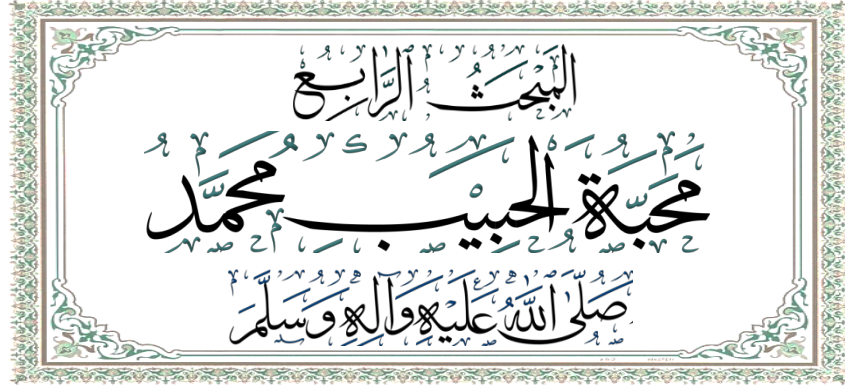 المَبْحَثُ الرَّابِعُ
مَحَبَّةُ الحَبِيْبِ مُحَمَّد
صَلَّى اللهُ عَلَيْهِ وَآلِهِ وَسَلَّمَ